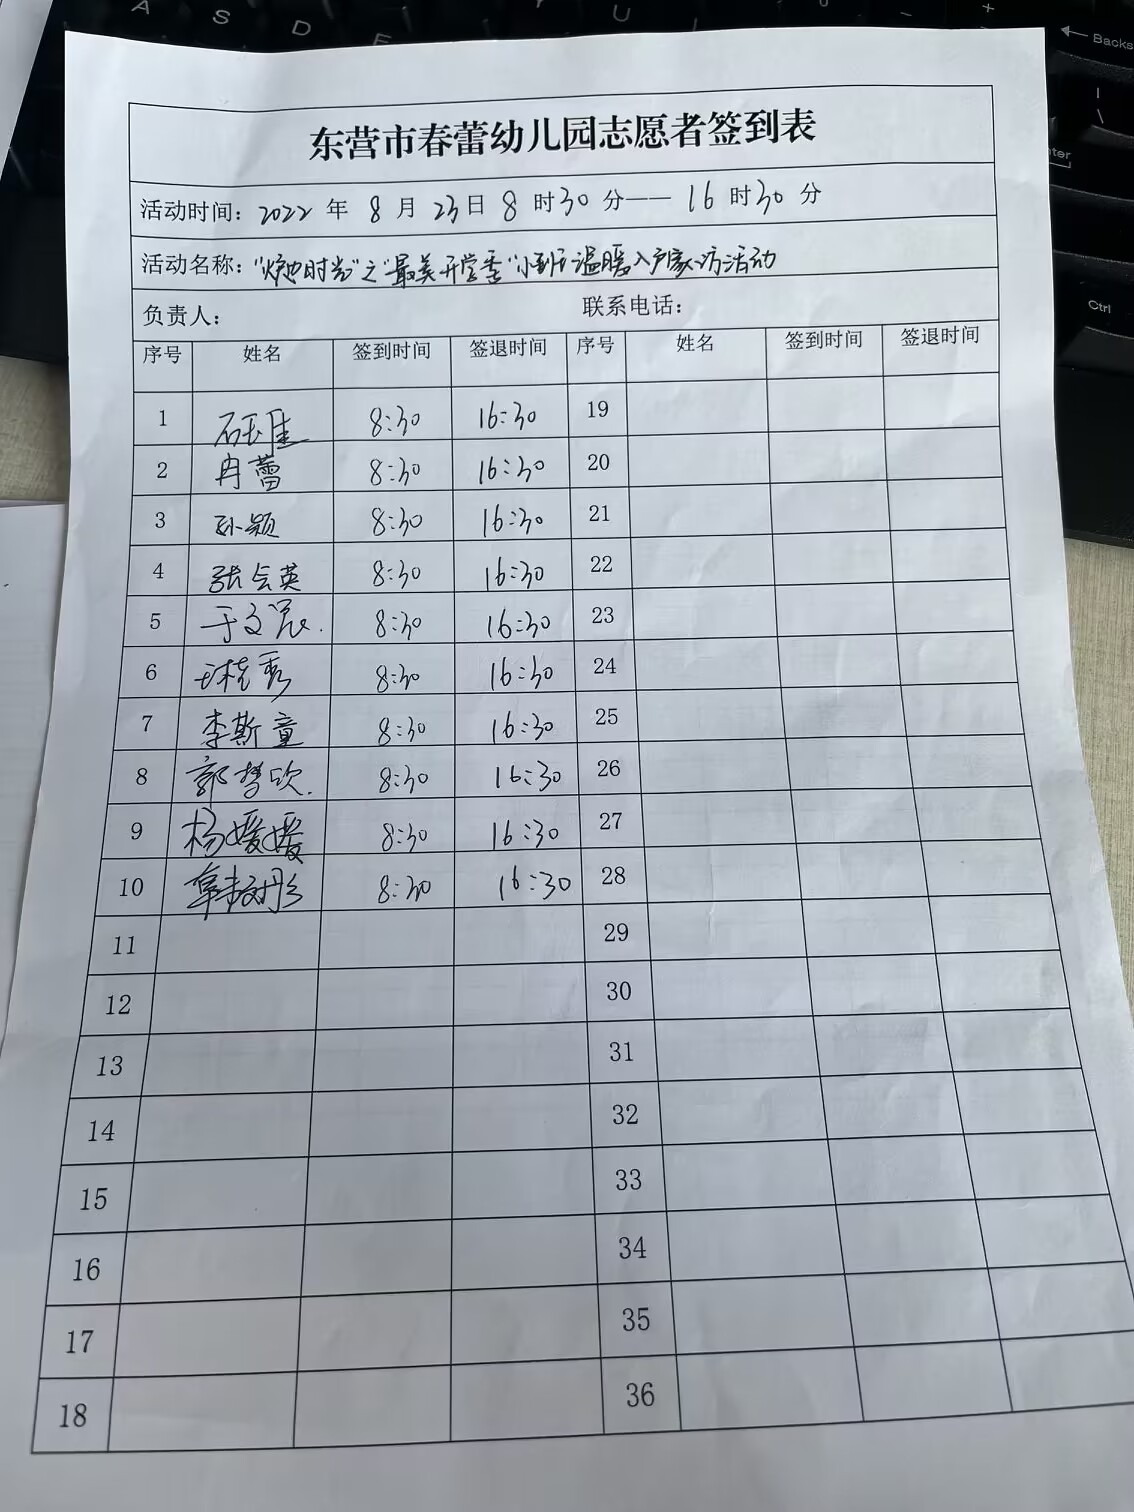 A S D F Y U
Backs
Ctrl
东营市春蕾幼儿园志愿者签到表
活动时间: 2022 年 8 月 23 日 8 时 30 分—— 16 时 30 分
活动名称: 时光"之"最美开学季"小班温暖入户家访活动
负责人: 联系电话:
序号 姓名 签到时间 签退时间 序号 姓名 签到时间 签退时间
1 石玉佳 8:30 16:30 19
2 冉蕾 8:30 16:30 20
3 孙颖 8:30 16:30 21
4 张会英 8:30 16:30 22
5 于文 8:30 16:30 23
6 秀 8:30 16:30 24
7 李斯童 8:30 16:30 25
8 郭梦欣. 8:30 16:30 26
9 杨媛媛 8:30 16:30 27
10 8:30 16:30 28
11 29
12 30
13 31
14 32
15 33
16 34
17 35
18 36